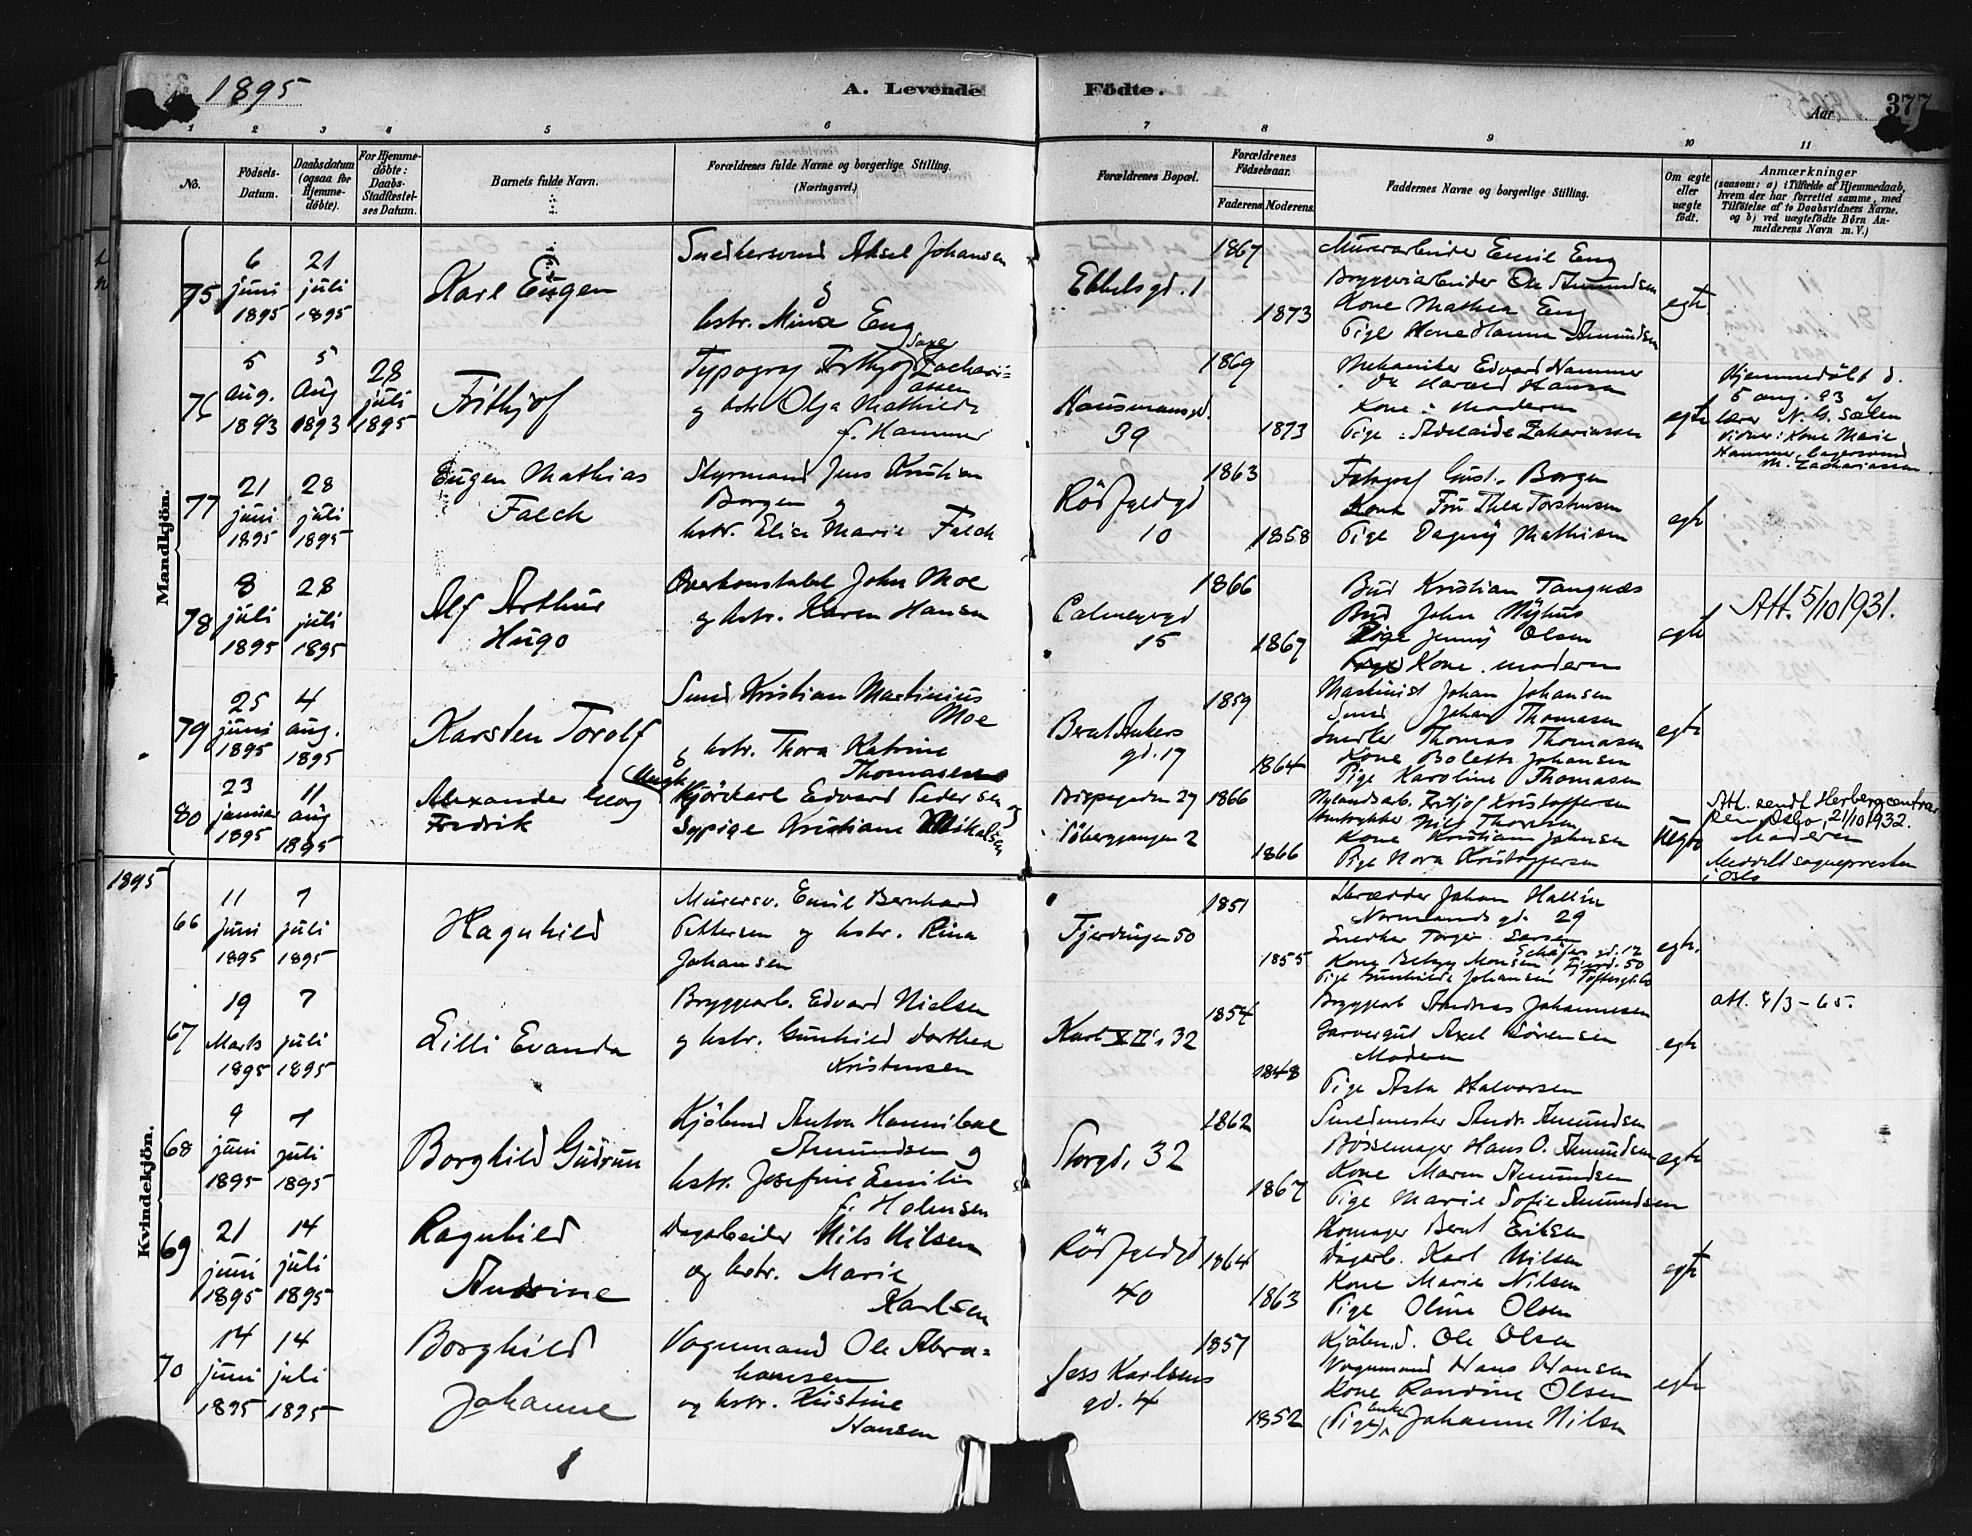 1895
A. Levende Födte.
Aar
377
1 2 3 4 5 6 7 8 9 10 11
No.
Födsels-Datum.
Daabsdatum (ogsaa for Hjemme-döbte).
For Hjemme-döbte: Daabs-Stadfæstel-ses Datum.
Barnets fulde Navn.
Forældrenes fulde Navne og borgerlige Stilling.
(Næringsvei.)
Forældrenes Bopæl.
Forældrenes Födselsaar.
Faderens. Moderens.
Faddernes Navne og borgerlige Stilling.
Om ægte eller uægte födt.
Anmærkninger
(saasom: a) i Tilfælde af Hjemmedaab, hvem der har forrettet samme, med Tilföielse af to Daabsvidners Navne. og b) ved uægtefödte Börn An-melderens Navn m. V.)
Mandkjön.
75
6 juni 1895
21 juli 1895
Karl Eugen
Snedkersvend Aksel Johansen
og
hstr. Mina Eng
Ebbelsgd. 1
1867
1873
Murerarbeider Emil Eng
Bryggeriarbeider Ole Amundsen
Kone Mathea Eng
Pige Hanna Amundsen
egte
76
5 aug. 1893
5 Aug 1893
28 juli 1895
Frithjof
Typograf Frithjof Zachari-
assen
og hstr. Olga Mathilde
f. Hammer
Hausmannsgd.
39
1869
1873
Mekaniker Edvard Hammer
Harald Hansen
Kone : moderen
Pige : Adelaide Zakariassen
egte
Hjemmedöbt d.
5 aug. 93 af
lærer N. G. Sælen
Vidner: Kone Marie
Hammer,
M. Zachariassen
77
21 juni 1895
28 juli 1895
Eugen Mathias
Falch
Styrmand Jens Kristian
Borgen og
hstr. Elise Marie Falch
Rödfyldgd
10
1863
1858
Fotograf Gust. Borgen
Kone Fru Thea Torstensen
Pige Dagny Mathisen
egte
78
8 juli 1895
28 juli 1895
Alf Arthur
Hugo
Overkonstabel John Moe
og hstr. Karen Hansen
Calmeyergd
15
1866
1867
Bud Kristian Tangnæs
Bud John Nyhus
Pige Jenny Olsen
Kone moderen
egte
Att. 5/10 1931.
79
25 juni 1895
4 aug. 1895
Karsten Torolf
Smed Kristian Martinius
Moe
og hstr. Thora Katrine
Thomasen
Bernt Ankers
gd. 17
1859
1864
Maskinist Johan Johansen
Smed Johan Thomasen
Snedker Thomas Thomasen
Kone Bolette Johansen
Pige Karoline Thomasen
egte
80
23 januar 1895
11 aug 1895
Alexander Georg
Fredrik
Kjörekarl Edvard Pedersen og
Sypige Kristiane Mikalsen
Bispegaden 27
1866
1866
Nylandsarb. Fritjof Kristoffersen
Nils Thoresen
Kone Kristiane Johnsen
Pige Nora Kristoffersen
Uegte
Att. sendt Herbergcentralen
Oslo, 21/10 1932.
Moderen
Meddelt sognepresten
i Oslo
1895
Kvindekjön.
66
11 juni 1895
7 juli 1895
Hagnhild
Murersv. Emil Bernhard
Pettersen og hstr. Rina
Johansen
Fjerdingen 50
1851
1855
Skrædder Johan Hallin
Normandsgd. 29
Snedker Torger Larsen
Schäfersgd. 12
Kone Betzy Monsen Fjerd. 50
Pige Gunhilde Johansen
egte.
67
19 Marts 1895
7 juli 1895
Lilli Evanda
Bryggerarb. Edvard Nielsen
og hstr. Gunhild Dorthea
Kristensen
Karl XII's 32
1854
1848
Bryggarb Andreas Johannesen
Garvergut Axel Sörensen
Moderen
Pige Asta Halvorsen
egte
att. 8/3 - 65.
68
9 juni 1895
7 juli 1895
Borghild Gudrun
Kjöbmd Anton Hannibal
Amundsen og
hstr. Josefine Emilie
f. Holmsen
Storgd. 32
1862
1867
Smedmester Andr. Amundsen
Bössemager Hans O. Amundsen
Kone Maren Amundsen
Pige Marie Sofie Amundsen
egte
69
21 juni 1895
14 juli 1895
Ragnhild
Andrine
Dagarbeider Nils Nilsen
og hstr. Marie
Karlsen
Rödfyldgd
40
1864
1863
Skomager Bernt Eriksen
Dagarb. Karl Nilsen
Kone Marie Nilsen
Pige Oline Olsen
egte
70
14 juni 1895
14 juli 1895
Borghild
Johanne
Vognmand Ole Abra-
hamsen
og hstr. Kristine
Hansen
Jess Karlsens
gd. 4
1857
1852
Kjöbmd. Ole Olsen
Vognmand Hans Hansen
Kone Randine Olsen
(Pige) enke Johanne Nilsen
egte